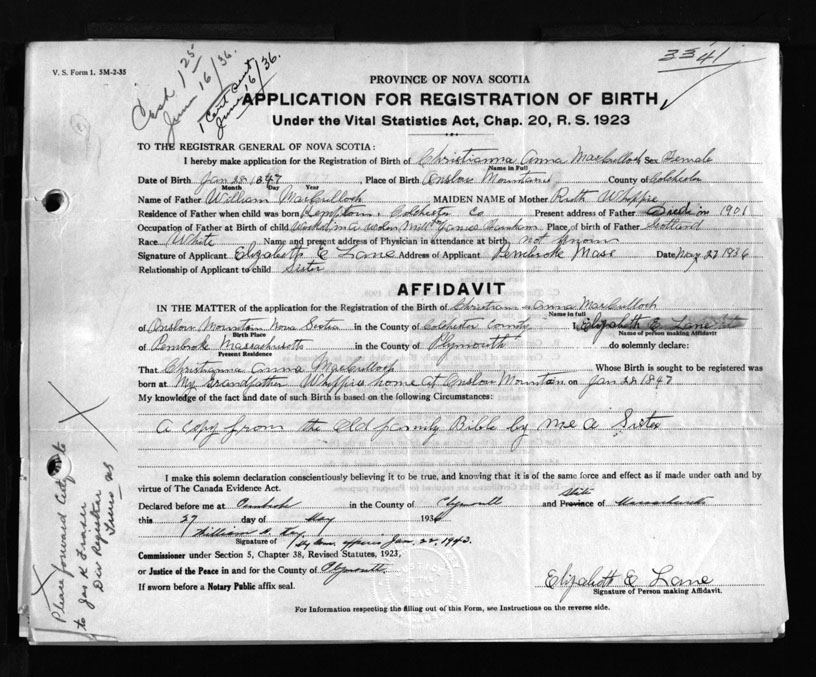 V. S. Form 1. 5M-2-35
Cash 1 25
June 16/36.
1 Cert sent
June 16/36.
3341
PROVINCE OF NOVA SCOTIA
APPLICATION FOR REGISTRATION OF BIRTH
Under the Vital Statistics Act, Chap. 20, R. S. 1923
TO THE REGISTRAR GENERAL OF NOVA SCOTIA:
I hereby make application for the Registration of Birth of Christianna Anna MacCulloch Sex Female
Name in Full
Date of Birth Jan 28 1847 Place of Birth Onslow Mountain County of Colchester
Month Day Year
Name of Father William MacCulloch MAIDEN NAME of Mother Ruth Whippie
Residence of Father when child was born Kemptown Colchester Co Present address of Father Died in 1901
Occupation of Father at Birth of child Worked in a Wolen Mill Place of birth of Father Scotland
Race White Name and present address of Physician in attendance at birth not known
Signature of Applicant Elizabeth E Lane Address of Applicant Pembroke Mass Date May 27 1936
Relationship of Applicant to child Sister
AFFIDAVIT
IN THE MATTER of the application for the Registration of the Birth of Christiann anna MacCulloch
Name in full
of Onslow Mountain Nova Scotia in the County of Colchester County I, Elizabeth E Lane
Birth Place Name of person making Affidavit
of Pembroke Massachusetts in the County of Plymouth do solemnly declare:
Present Residence
That Christianna Anna MacCulloch Whose Birth is sought to be registered was
born at My Grandfather Whippie home at Onslow Mountain on Jan 28 1847
My knowledge of the fact and date of such Birth is based on the following Circumstances:
A copy from the Old family Bible by me a Sister
I make this solemn declaration conscientiously believing it to be true, and knowing that it is of the same force and effect as if made under oath and by
virtue of The Canada Evidence Act.
State
Declared before me at Pembroke in the County of Plymouth and Province of Massachusetts
this 27 day of May 1936
William
Signature of My Com. expires Jan. 22, 1943.
Commissioner under Section 5, Chapter 38, Revised Statutes, 1923,
or Justice of the Peace in and for the County of Plymouth.
If sworn before a Notary Public affix seal.
Elizabeth E Lane
Signature of Person making Affidavit.
For Information respecting the filling out of this Form, see Instructions on the reverse side.
Please forward Certificate
to Jas K Fraser
Div Registrar
Truro NS